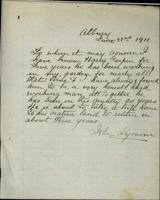 Albury
June 22nd 1911
To whom it may concern I
have known Harry Parkin for
five years he has been working
in my garden for nearly all
that time & I have always found
him to be a very honest hard
working man altogether he
has been in this country 20 years
He is about to take a trip home
to his native land to return in
about three years
John